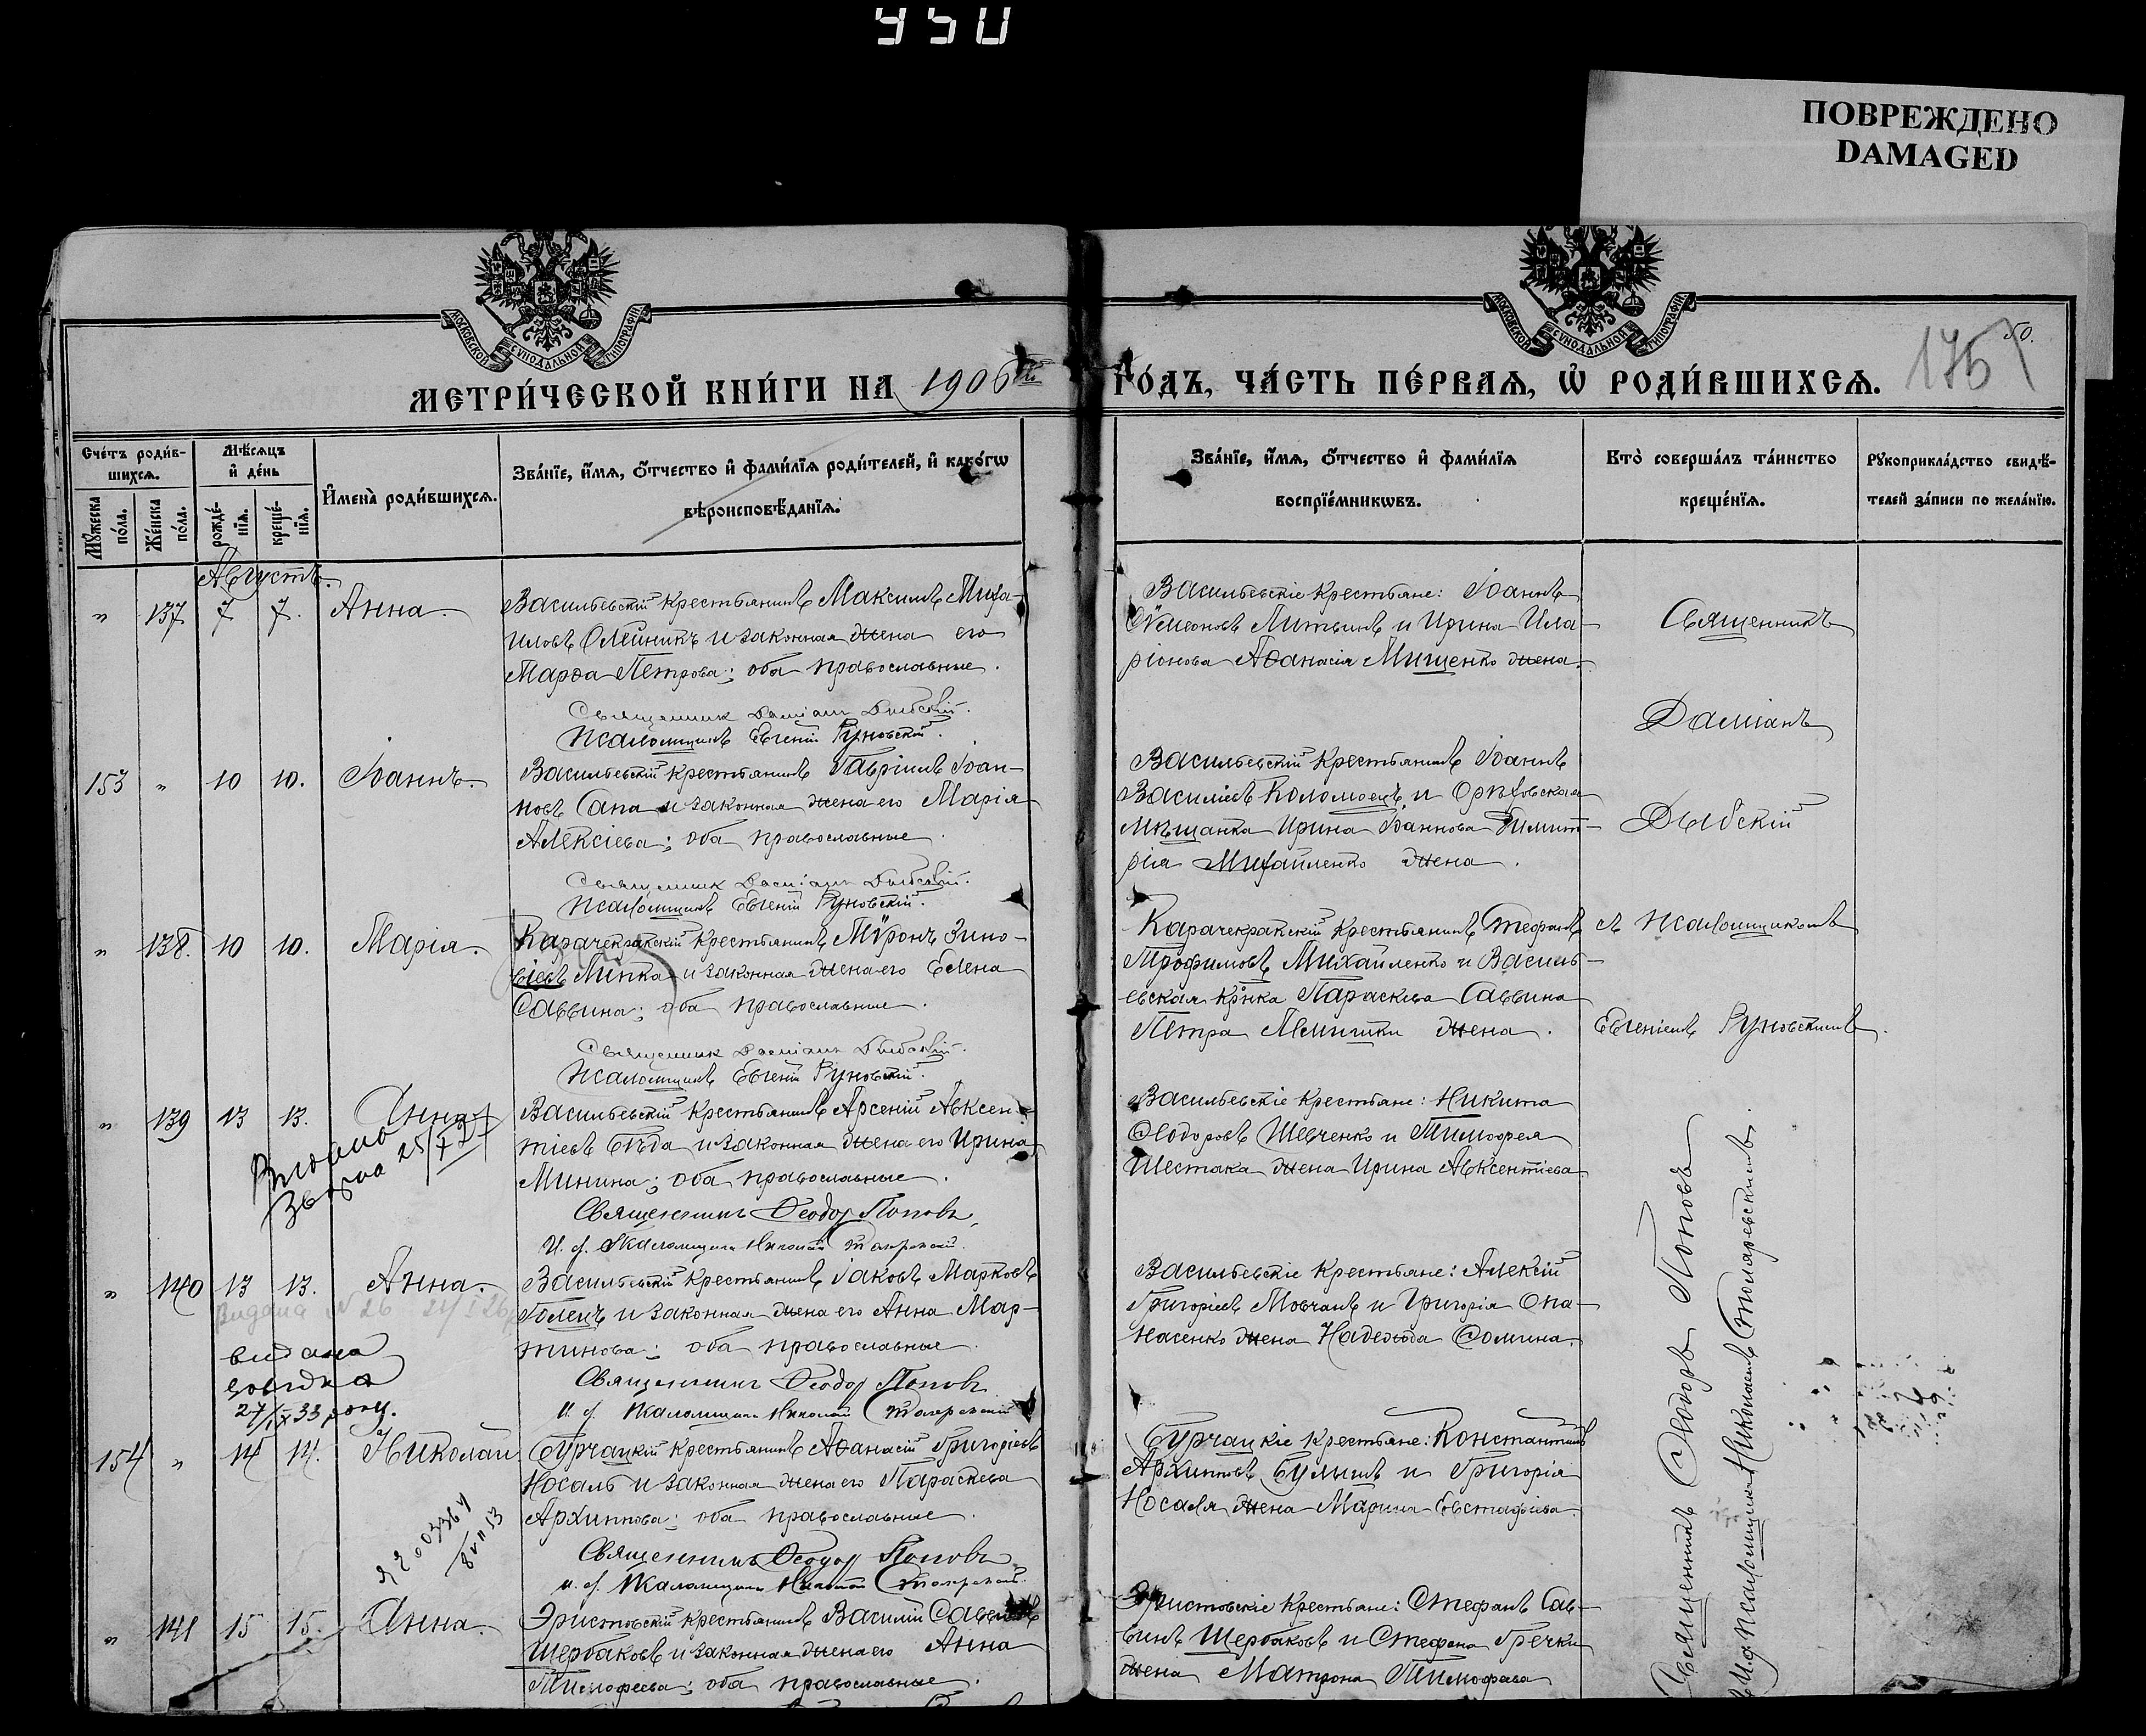 950
ПОВРЕЖДЕНО
DAMAGED
МОСКОВСКОЙ СѴНОДАЛЬНОЙ ТИПОГРАФІИ
МОСКОВСКОЙ СѴНОДАЛЬНОЙ ТИПОГРАФІИ
МЕТРИ́ЧЕСКОЙ КНИ́ГИ НА 1906й ГО́ДЪ, ЧА́СТЬ ПЕ́РВАѦ, Ѡ҆ РОДИ́ВШИХСѦ.
175
50.
Сче́тъ роди́в-
шихсѧ.
Мꙋ́жеска по́ла.
Же́нска по́ла.
Мѣ́сѧцъ
и҆ де́нь
рожде́-
нїѧ.
креще́-
нїѧ.
И҆мена̀ роди́вшихсѧ.
Зва́нїе, и҆́мѧ, ѻ҆́тчество и҆ фами́лїѧ роди́телей, и҆ како́гѡ
вѣроисповѣ́данїѧ.
Зва́нїе, и҆́мѧ, ѻ҆́тчество и҆ фами́лїѧ
воспрїе́мникѡвъ.
Кто̀ соверша́лъ та́инство
креще́нїѧ.
Рꙋкоприкла́дство свидѣ́-
телей за́писи по жела́нїю.
Августъ.
" 137 7 7. Анна.
Васильевскій крестьянинъ Максимъ Миха-
иловъ Олейникъ и законная жена его
Марѳа Петрова; оба православные.
Священник Даміан Дыбскій.
Псаломщикъ Евгеній Руновскій.
Васильевскіе крестьяне: Іоаннъ
Сѵмеоновъ Литвинъ и Ирина Ила-
ріонова Аѳанасія Мищенко жена.
Священникъ
Даміанъ
Дыбскій
съ псаломщикомъ
Евгеніемъ Руновскимъ.
153 " 10 10. Іоаннъ.
Васильевскій крестьянинъ Гавріилъ Іоан-
новъ Сапа и законная жена его Марія
Алексіева; оба православные.
Священник Даміан Дыбскій.
Псаломщикъ Евгеній Руновскій.
Васильевскій крестьянинъ Іоаннъ
Василіевъ Коломоецъ и Орѣховская
мѣщанка Ирина Іоаннова Димит-
рія Михайленко жена.
" 138. 10 10. Марія.
Карачекракскій крестьянинъ Мѵронъ Зино-
віевъ Липка и законная жена его Елена
Саввина; оба православные.
Священник Даміан Дыбскій.
Псаломщикъ Евгеній Руновскій.
Карачекракскій крестьянинъ Стефанъ
Трофимовъ Михайленко и Василь-
евская кр-нка Параскева Саввина
Петра жена.
" 139 13 13. Анна
Видано
25/
Васильевскій крестьянинъ Арсеній Авксен-
тіевъ Бѣда и законная жена его Ирина
Минина; оба православные.
Священникъ Ѳеодор Поповъ
И. д. Псаломщика Николай Столяревскій.
Васильевскіе крестьяне: Никита
Ѳеодоровъ Шевченко и Тимофея
Шестака жена Ирина Авксентіева.
" 140 13 13. Анна.
Видана № 26
видана
довідка
27/IX 33 року.
Васильевскій крестьянинъ Іаковъ Марковъ
Голецъ и законная жена его Анна Мар-
тинова; оба православные.
Священникъ Ѳеодор Поповъ
И. д. Псаломщика Николай Столяревскій
Васильевскіе крестьяне: Алексій
Григоріевъ Мовчанъ и Григорія Опа-
насенко жена Надежда Ѳомина.
154 " 14 14. Николай
003364
Бурчацкій крестьянинъ Аѳанасій Григоріевъ
Носаль и законная жена его Параскева
Архиппова; оба православные.
Священникъ Ѳеодор Поповъ
И. д. Псаломщика Николай Столяревскій.
Бурчацкіе крестьяне: Константинъ
Архипповъ и Григорія
Носаля жена Марина Евстафіева.
" 141 15 15. Анна.
Эристовскій крестьянинъ Василій Саввинъ
Щербаковъ и законная жена его Анна
Тимофеева; оба православные.
Эристовскіе крестьяне: Стефанъ Сав-
винъ Щербаковъ и Стефана Гречки
жена Матрона Тимофеева
Священникъ Ѳеодоръ Поповъ
съ И. д. Псаломщика Николаемъ Столяревскимъ.